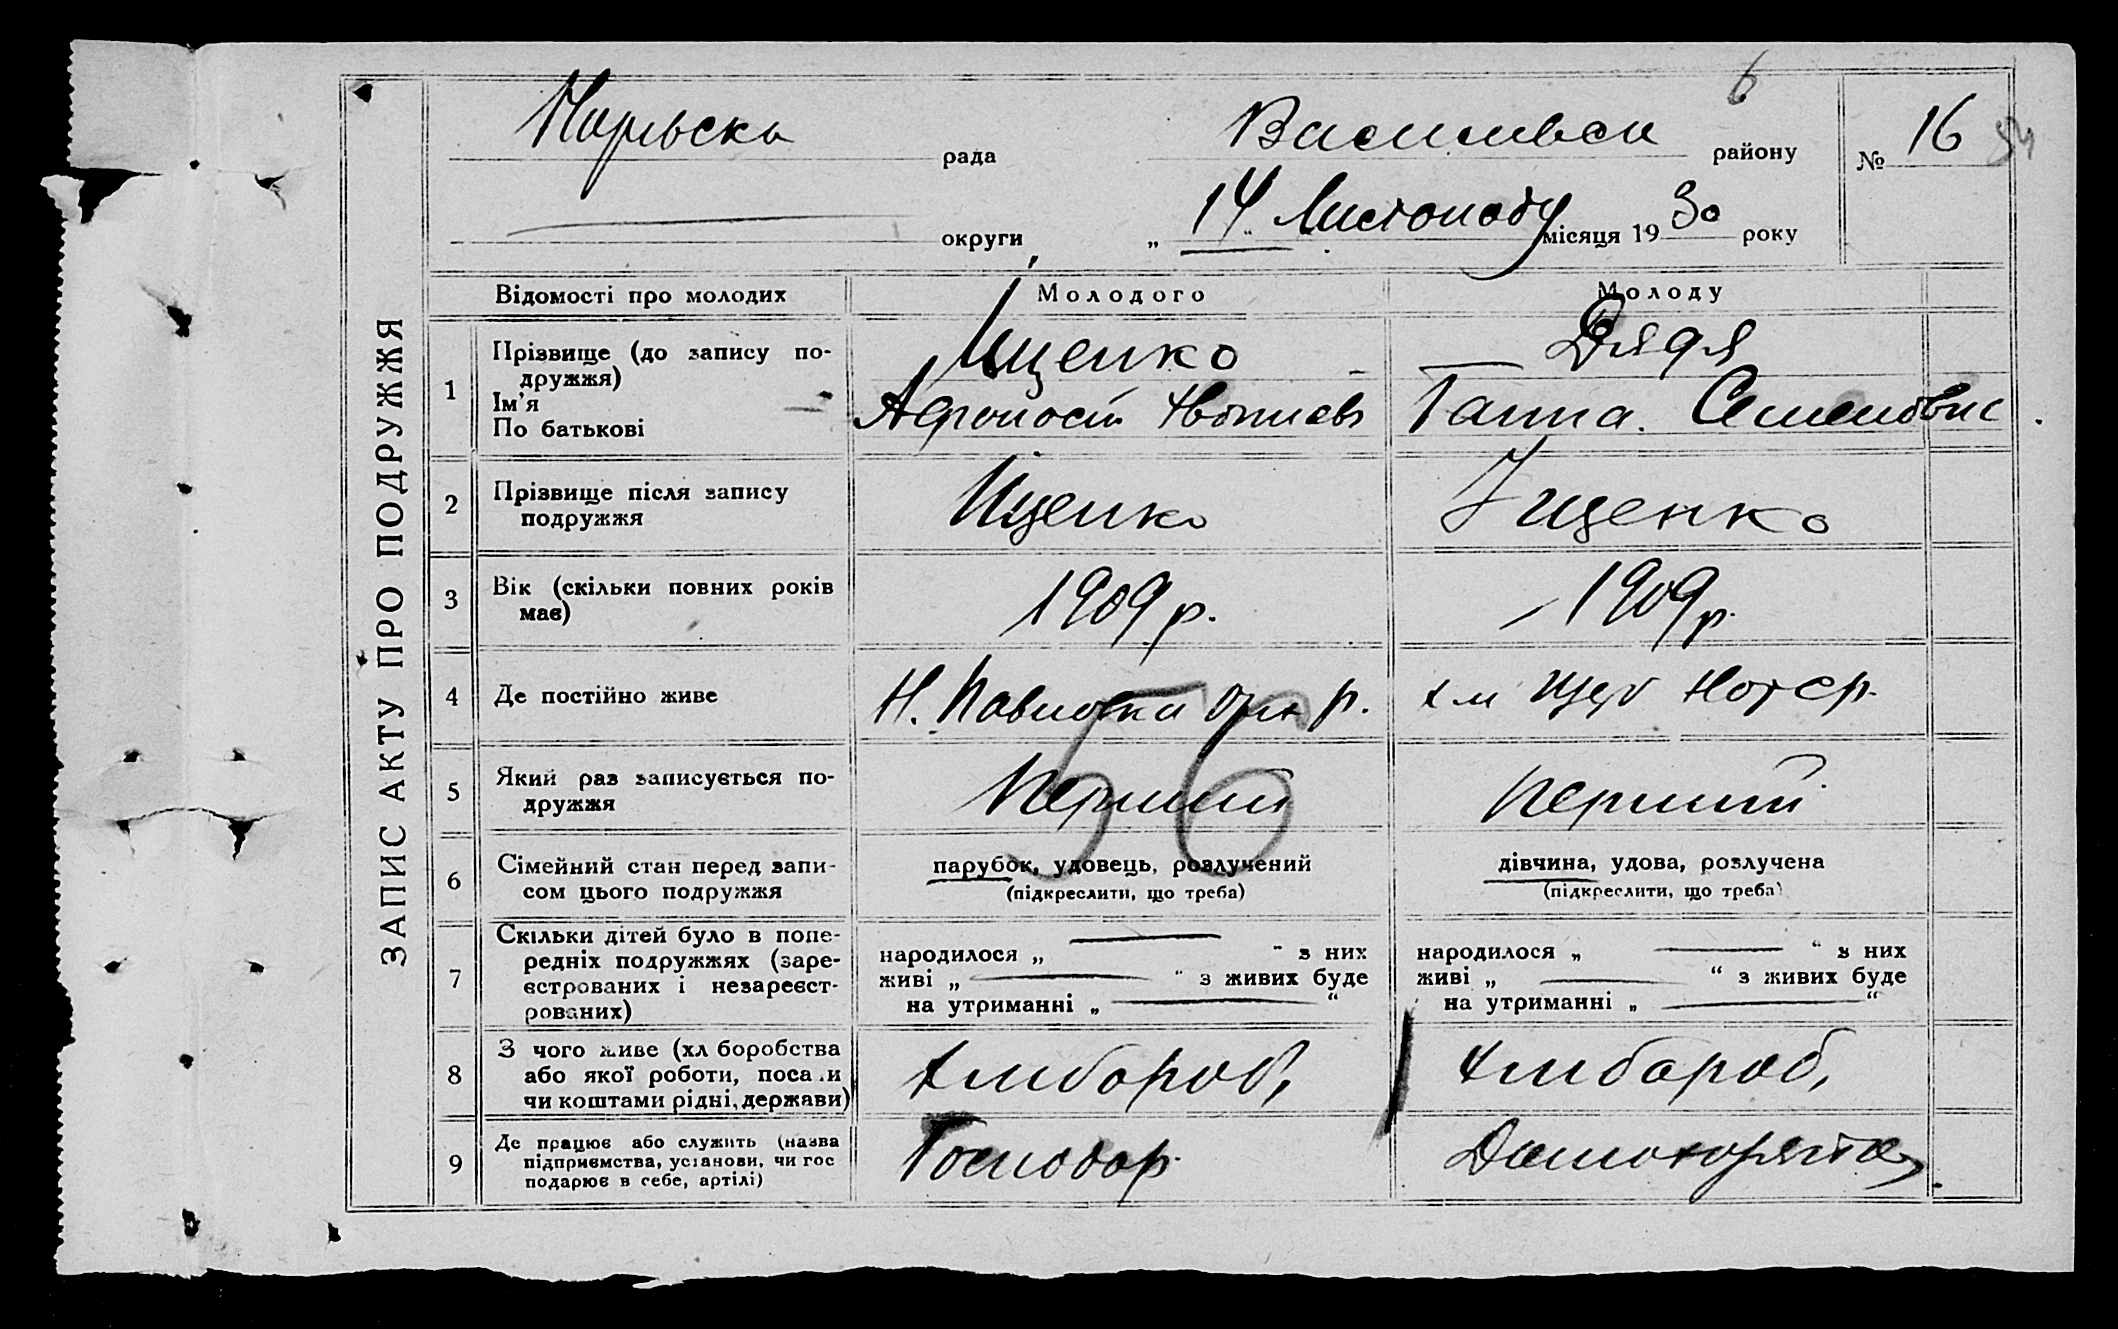 6
Василівськ району
№ 16
рада
округи „ 14 " Листопаду місяця 1930 року
ЗАПИС АКТУ ПРО ПОДРУЖЖЯ
Відомості про молодих Молодого Молоду
1 Прізвище (до запису по-
дружжя)
Ім'я
По батькові
Іщенко Дядя
Ганна. Семеновна
2 Прізвище після запису
подружжя
Іщенко Іщенко
3 Вік (скільки повних років
має)
1909 р. 1909 р.
4 Де постійно живе
Н. Павловка р.
5 Який раз записується по-
дружжя
Перший Перший
56
6 Сімейний стан перед запи-
сом цього подружжя
парубок, удовець, розлучений
(підкреслити, що треба)
дівчина, удова, розлучена
(підкреслити, що треба)
7 Скільки дітей було в попе-
редніх подружжях (заре-
єстрованих і незареєст-
рованих)
народилося „ " з них
живі „ " з живих буде
на утриманні „ "
народилося „ " з них
живі „ " з живих буде
на утриманні „ "
8 З чого живе (хл боробства
або якої роботи, поса и
чи коштами рідні, держави)
хлибороб, хлибороб,
9 Де працює або служить (назва
підприємства, установи, чи гос
подарює в себе, артілі)
Господар Домохоряйка